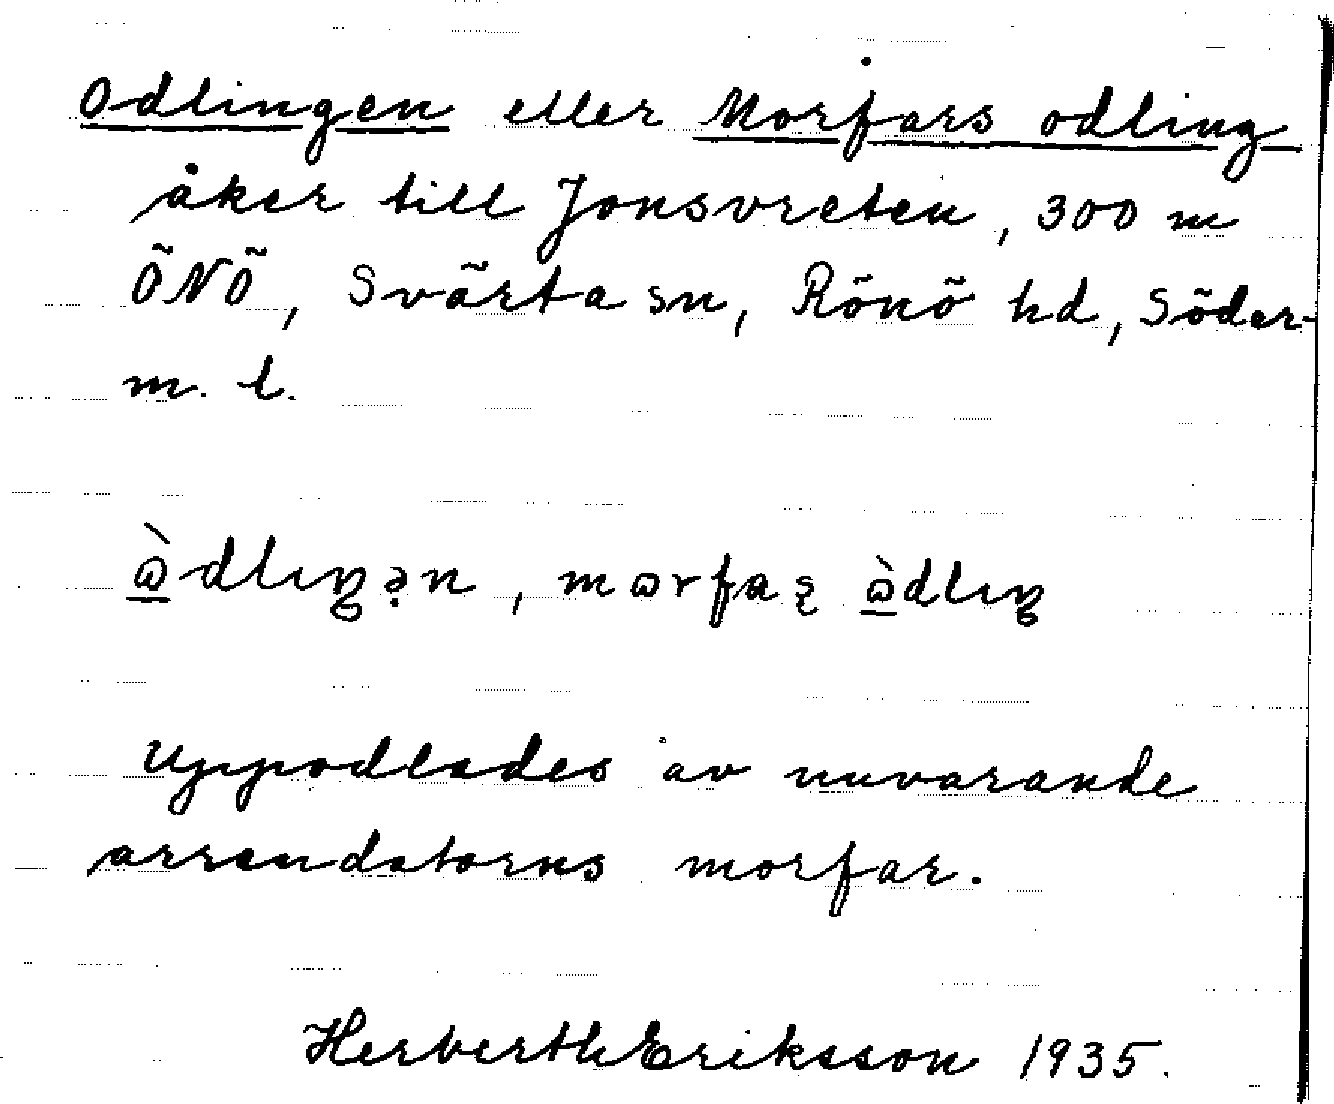 Odlingen eller Morfars odling
åker till Jonsvreten, 300 m
ÖNÖ, Svärta sn, Rönö hd, Söder-
m. l.
ὼdlɩŋən, mɷrfaʂ ὼdlɩŋ
Uppodlades av nuvarande
arrendatorns morfar.
Herberth Eriksson 1935.